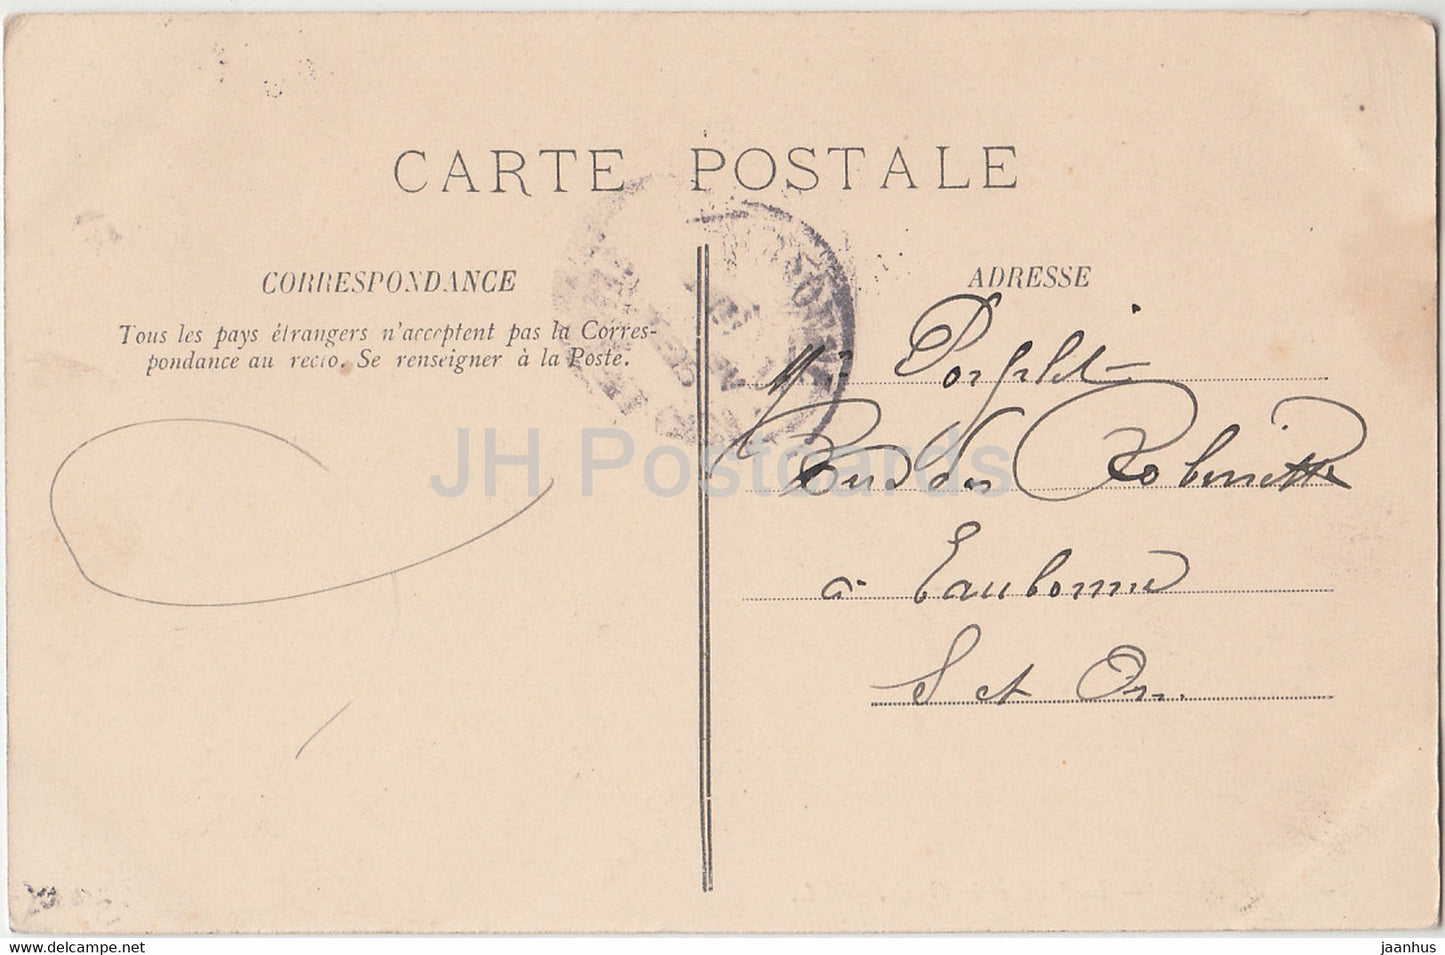 CARTE POSTALE
CORRESPONDANCE
Tous les pays étrangers n'acceptent pas la Corres-
pondance au recto. Se renseigner à la Poste.
ADRESSE
Mr
Rue des Robinettes
à Eaubonne
S et O
JH Postcards
www.hippostcard.com
jaanhus